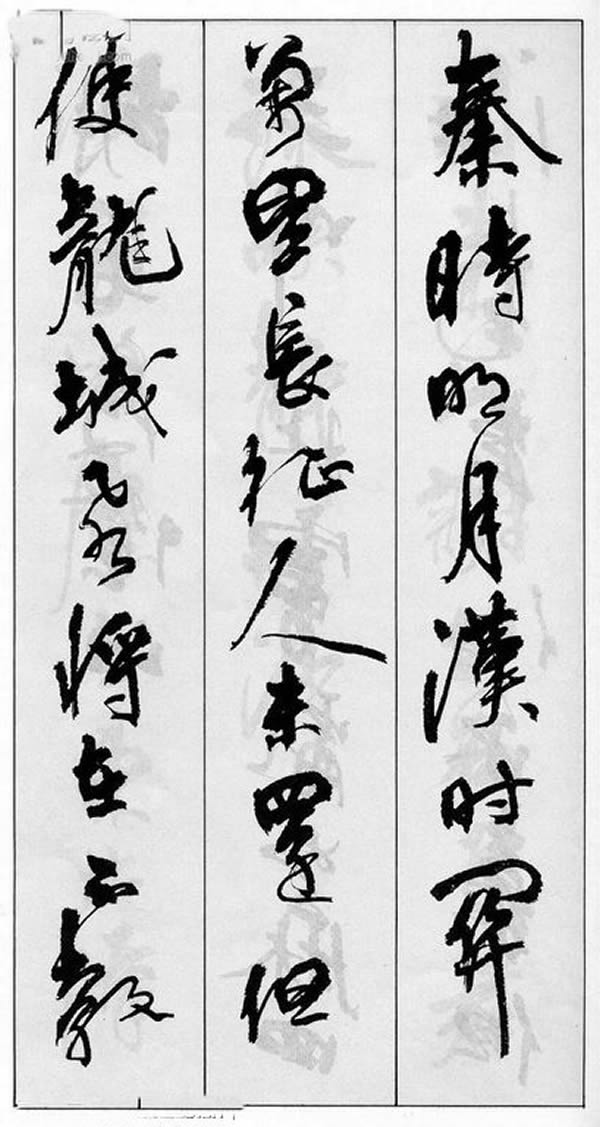 秦時明月漢时關
萬里長征人未還但
使龍城飛將在不教